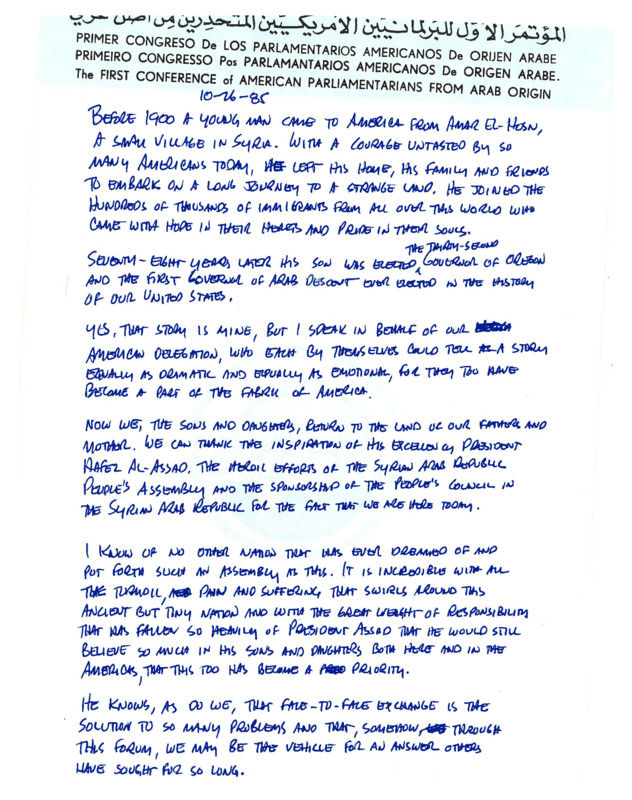 المؤتمر الاول للبرلمانيين الامريكيين المتحدرين من اصل عربي
PRIMER CONGRESO De LOS PARLAMENTARIOS AMERICANOS De ORIJEN ARABE
PRIMEIRO CONGRESSO Pos PARLAMANTARIOS AMERICANOS De ORIGEN ARABE.
The FIRST CONFERENCE of AMERICAN PARLIAMENTARIANS FROM ARAB ORIGIN
10-26-85
BEFORE 1900 A YOUNG MAN CAME TO AMERICA FROM AMAR EL-HOSN,
A SMALL VILLAGE IN SYRIA. WITH A COURAGE UNTASTED BY SO
MANY AMERICANS TODAY, HE LEFT HIS HOME, HIS FAMILY AND FRIENDS
TO EMBARK ON A LONG JOURNEY TO A STRANGE LAND. HE JOINED THE
HUNDREDS OF THOUSANDS OF IMMIGRANTS FROM ALL OVER THIS WORLD WHO
CAME WITH HOPE IN THEIR HEARTS AND PRIDE IN THEIR SOULS.
SEVENTY-EIGHT YEARS LATER HIS SON WAS ELECTED THE THIRTY-SECOND GOVERNOR OF OREGON
AND THE FIRST GOVERNOR OF ARAB DESCENT EVER ELECTED IN THE HISTORY
OF OUR UNITED STATES.
YES, THAT STORY IS MINE, BUT I SPEAK IN BEHALF OF OUR
AMERICAN DELEGATION, WHO EACH BY THEMSELVES COULD TELL A STORY
EQUALLY AS DRAMATIC AND EQUALLY AS EMOTIONAL, FOR THEY TOO HAVE
BECOME A PART OF THE FABRIC OF AMERICA.
NOW WE, THE SONS AND DAUGHTERS, RETURN TO THE LAND OF OUR FATHERS AND
MOTHER. WE CAN THANK THE INSPIRATION OF HIS EXCELLENCY PRESIDENT
HAFEZ AL-ASSAD. THE HEROIC EFFORTS OF THE SYRIAN ARAB REPUBLIC
PEOPLE'S ASSEMBLY AND THE SPONSORSHIP OF THE PEOPLE'S COUNCIL IN
THE SYRIAN ARAB REPUBLIC FOR THE FACT THAT WE ARE HERE TODAY.
I KNOW OF NO OTHER NATION THAT HAS EVER DREAMED OF AND
PUT FORTH SUCH AN ASSEMBLY AS THIS. IT IS INCREDIBLE WITH ALL
THE TURMOIL, PAIN AND SUFFERING THAT SWIRLS AROUND THIS
ANCIENT BUT TINY NATION AND WITH THE GREAT WEIGHT OF RESPONSIBILITY
THAT HAS FALLEN SO HEAVILY OF PRESIDENT ASSAD THAT HE WOULD STILL
BELIEVE SO MUCH IN HIS SONS AND DAUGHTERS BOTH HERE AND IN THE
AMERICAS, THAT THIS TOO HAS BECOME A PRIORITY.
HE KNOWS, AS DO WE, THAT FACE-TO-FACE EXCHANGE IS THE
SOLUTION TO SO MANY PROBLEMS AND THAT, SOMEHOW, THROUGH
THIS FORUM, WE MAY BE THE VEHICLE FOR AN ANSWER OTHERS
HAVE SOUGHT FOR SO LONG.